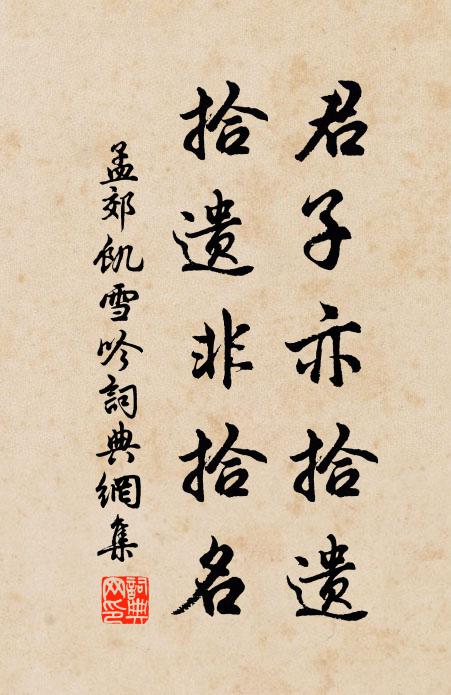 君子亦拾遺
拾遺非拾名
孟郊飢雪吟詞典網集